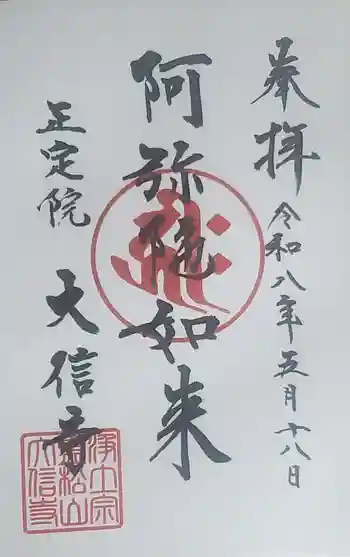 奉拝
令和八年五月十八日
阿弥陀如来
正定院
大信寺
浄土宗
松山
大信寺